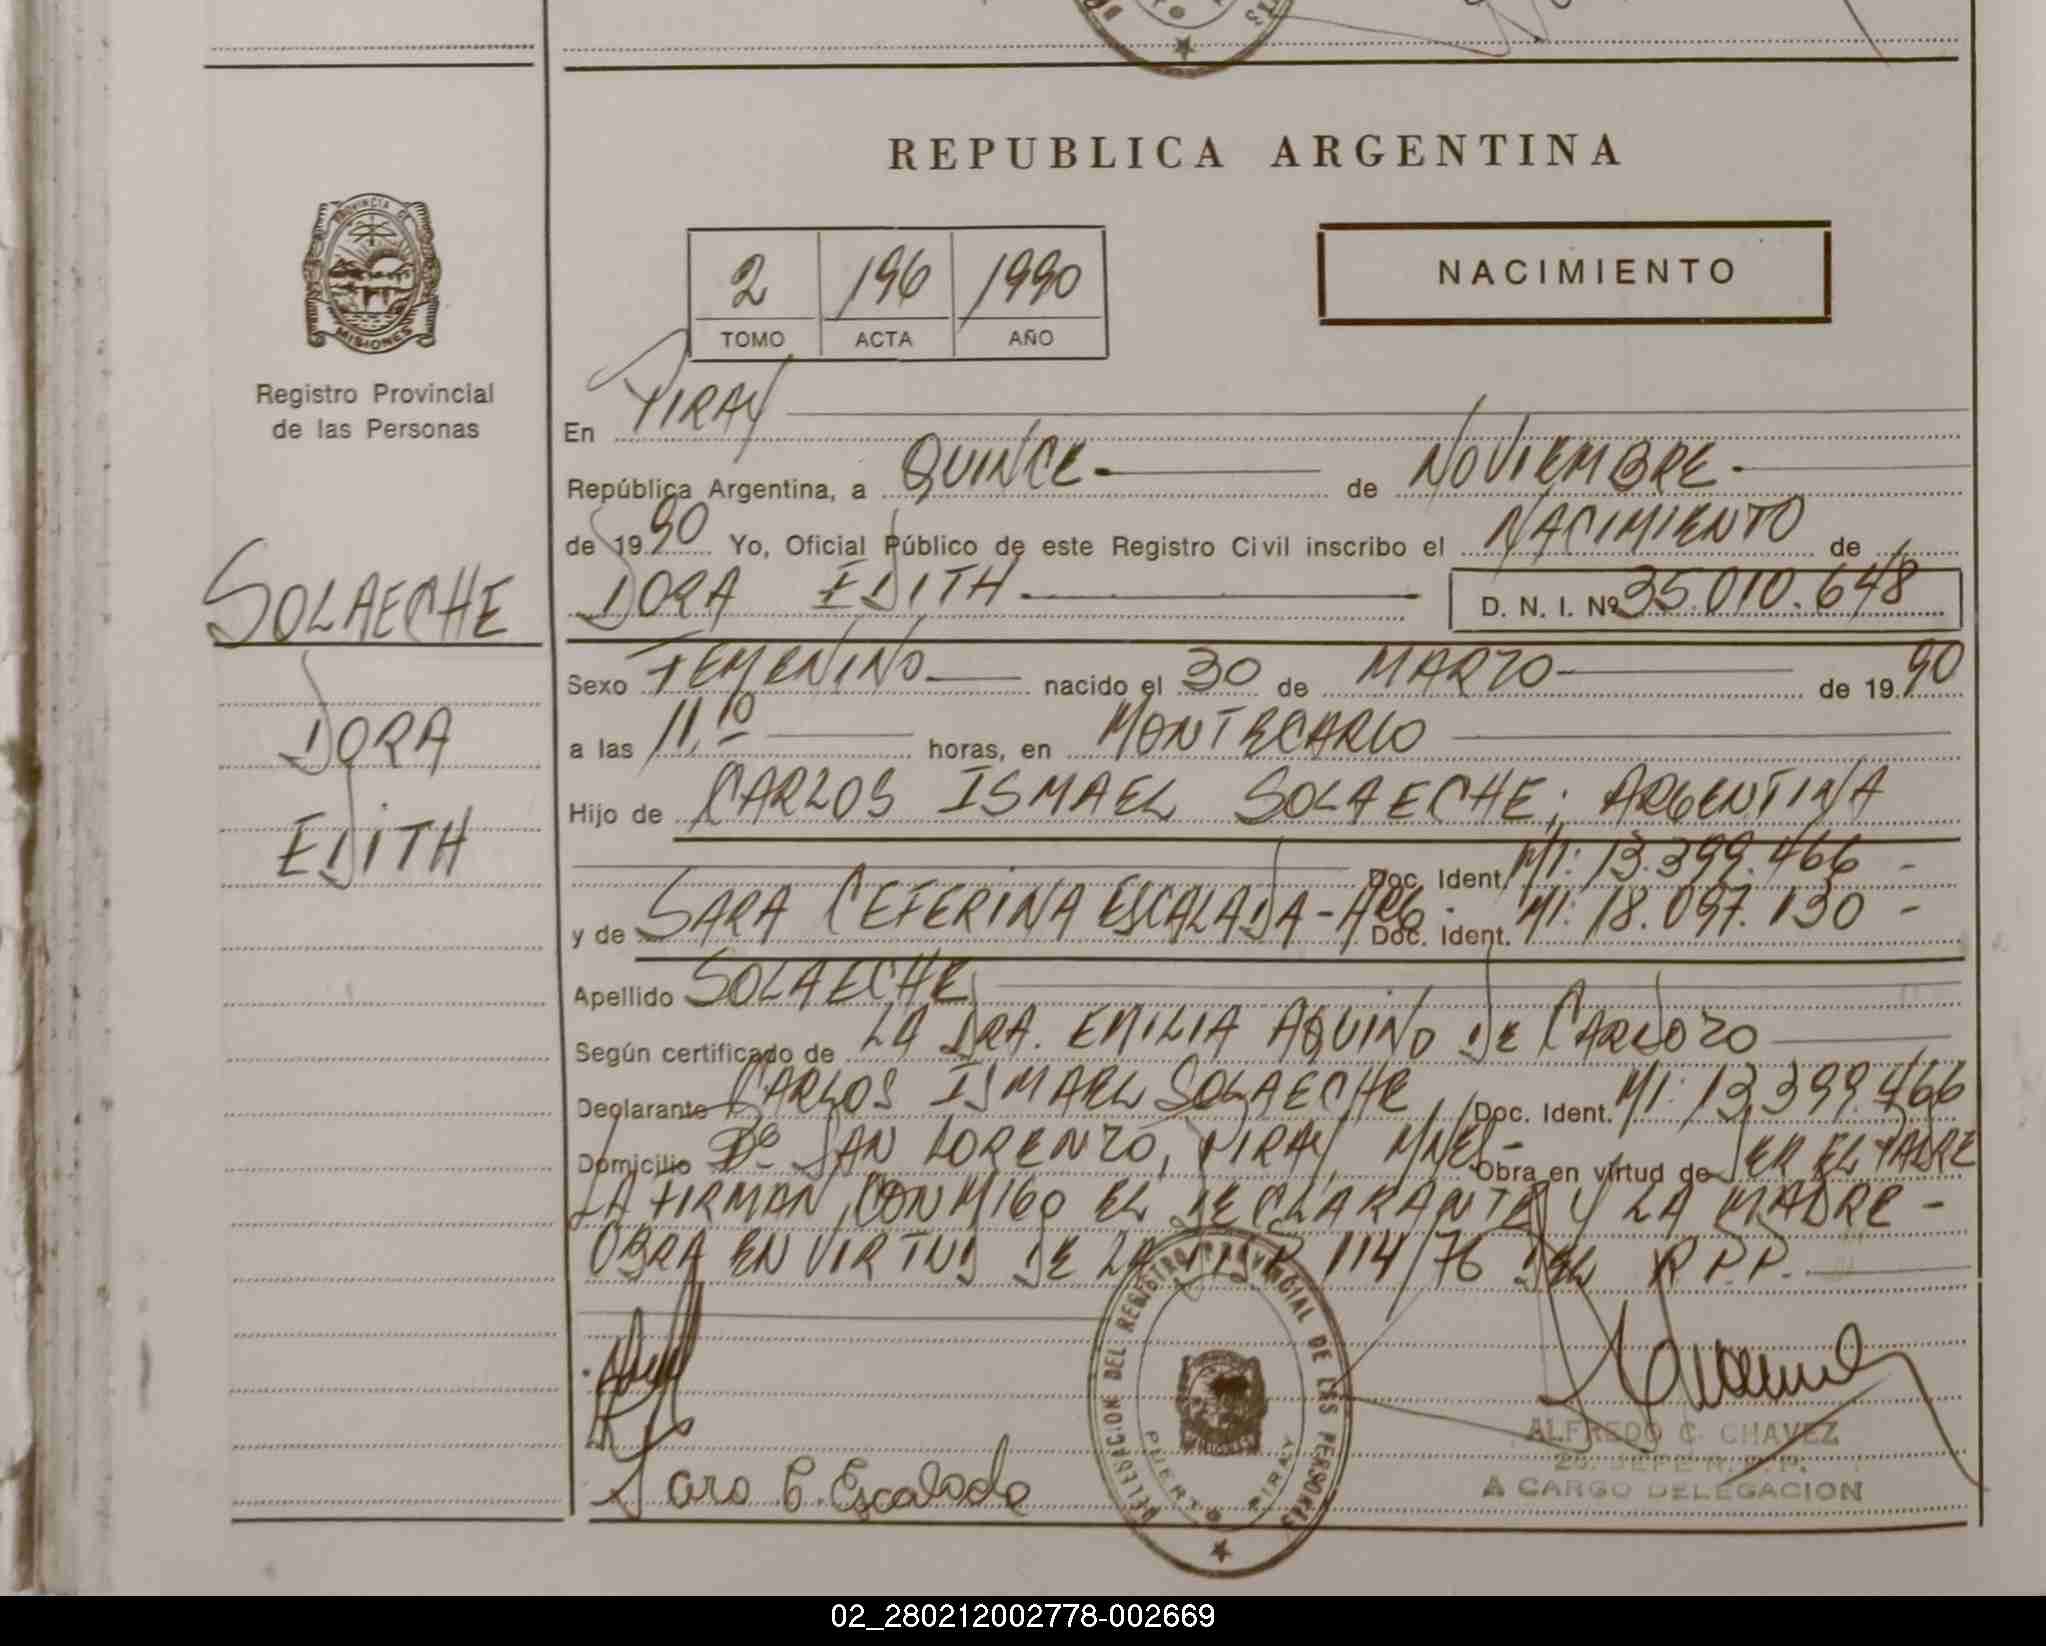 REPUBLICA ARGENTINA
NACIMIENTO
2 196 1990
TOMO ACTA AÑO
PROVINCIA DE
MISIONES
Registro Provincial
de las Personas
SOLAECHE
DORA
EDITH
En PIRAY
República Argentina, a QUINCE.- de NOVIEMBRE.-
de 1990 Yo, Oficial Público de este Registro Civil inscribo el NACIMIENTO de
DORA EDITH D. N. I. Nº 35.010.648
Sexo FEMENINO nacido el 30 de MARZO de 1990
a las 11,10 horas, en MONTECARLO
Hijo de CARLOS ISMAEL SOLAECHE; ARGENTINA
Doc. Ident. MI: 13.399.466 -
y de SARA CEFERINA ESCALADA - ARG - Doc. Ident. MI: 18.097.130 -
Apellido SOLAECHE
Según certificado de LA DRA. EMILIA AQUINO DE CARDOZO
Declarante CARLOS ISMAEL SOLAECHE Doc. Ident. MI: 13,399.466
Domicilio Bº SAN LORENZO, PIRAY, MNES - Obra en virtud de SER EL PADRE
LA FIRMAN CONMIGO EL DECLARANTE Y LA MADRE -
OBRA EN VIRTUD DE LA 114/76 DEL R.P.P.
Sara C. Escalada
DELEGACION DEL REGISTRO PROVINCIAL DE LAS PERSONAS
PUERTO PIRAY
MISIONES
ALFREDO C. CHAVEZ
A CARGO DELEGACION
02_280212002778-002669